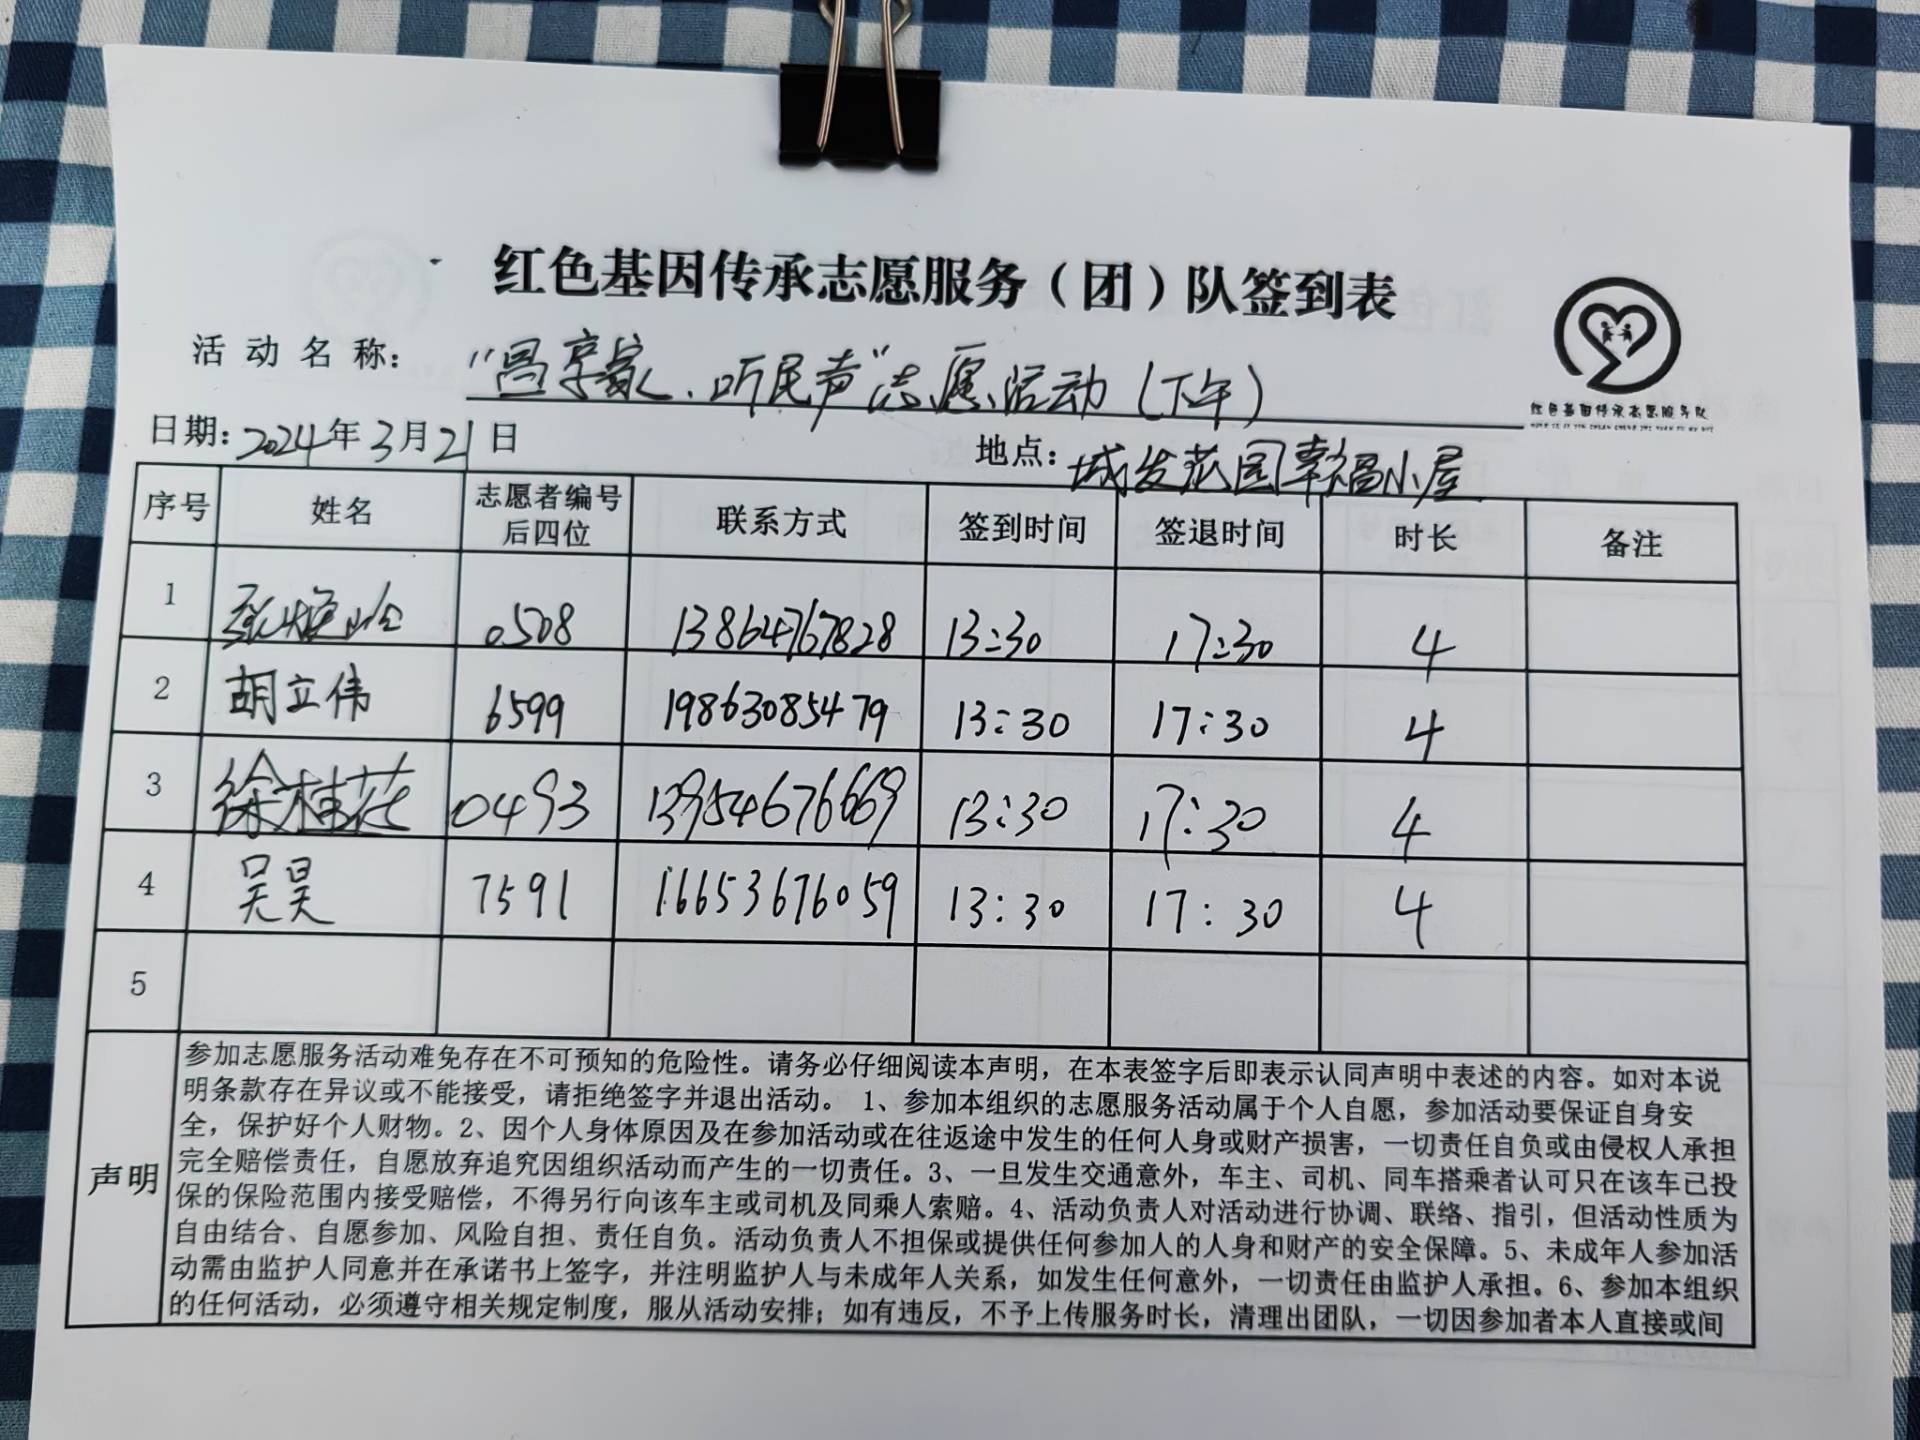 红色基因传承志愿服务（团）队签到表
活动名称： “昌享家、听民声”志愿活动（下午）
红色基因传承志愿服务队
日期：2024年3月21日 地点：城发花园幸福小屋
序号 姓名 志愿者编号后四位 联系方式 签到时间 签退时间 时长 备注
1 0508 13864767828 13:30 17:30 4
2 胡立伟 6599 19863085479 13:30 17:30 4
3 徐桂花 0493 13954676669 13:30 17:30 4
4 吴昊 7591 16653676059 13:30 17:30 4
5
声明
参加志愿服务活动难免存在不可预知的危险性。请务必仔细阅读本声明，在本表签字后即表示认同声明中表述的内容。如对本说
明条款存在异议或不能接受，请拒绝签字并退出活动。 1、参加本组织的志愿服务活动属于个人自愿，参加活动要保证自身安
全，保护好个人财物。2、因个人身体原因及在参加活动或在往返途中发生的任何人身或财产损害，一切责任自负或由侵权人承担
完全赔偿责任，自愿放弃追究因组织活动而产生的一切责任。3、一旦发生交通意外，车主、司机、同车搭乘者认可只在该车已投
保的保险范围内接受赔偿，不得另行向该车主或司机及同乘人索赔。4、活动负责人对活动进行协调、联络、指引，但活动性质为
自由结合、自愿参加、风险自担、责任自负。活动负责人不担保或提供任何参加人的人身和财产的安全保障。5、未成年人参加活
动需由监护人同意并在承诺书上签字，并注明监护人与未成年人关系，如发生任何意外，一切责任由监护人承担。6、参加本组织
的任何活动，必须遵守相关规定制度，服从活动安排；如有违反，不予上传服务时长，清理出团队，一切因参加者本人直接或间